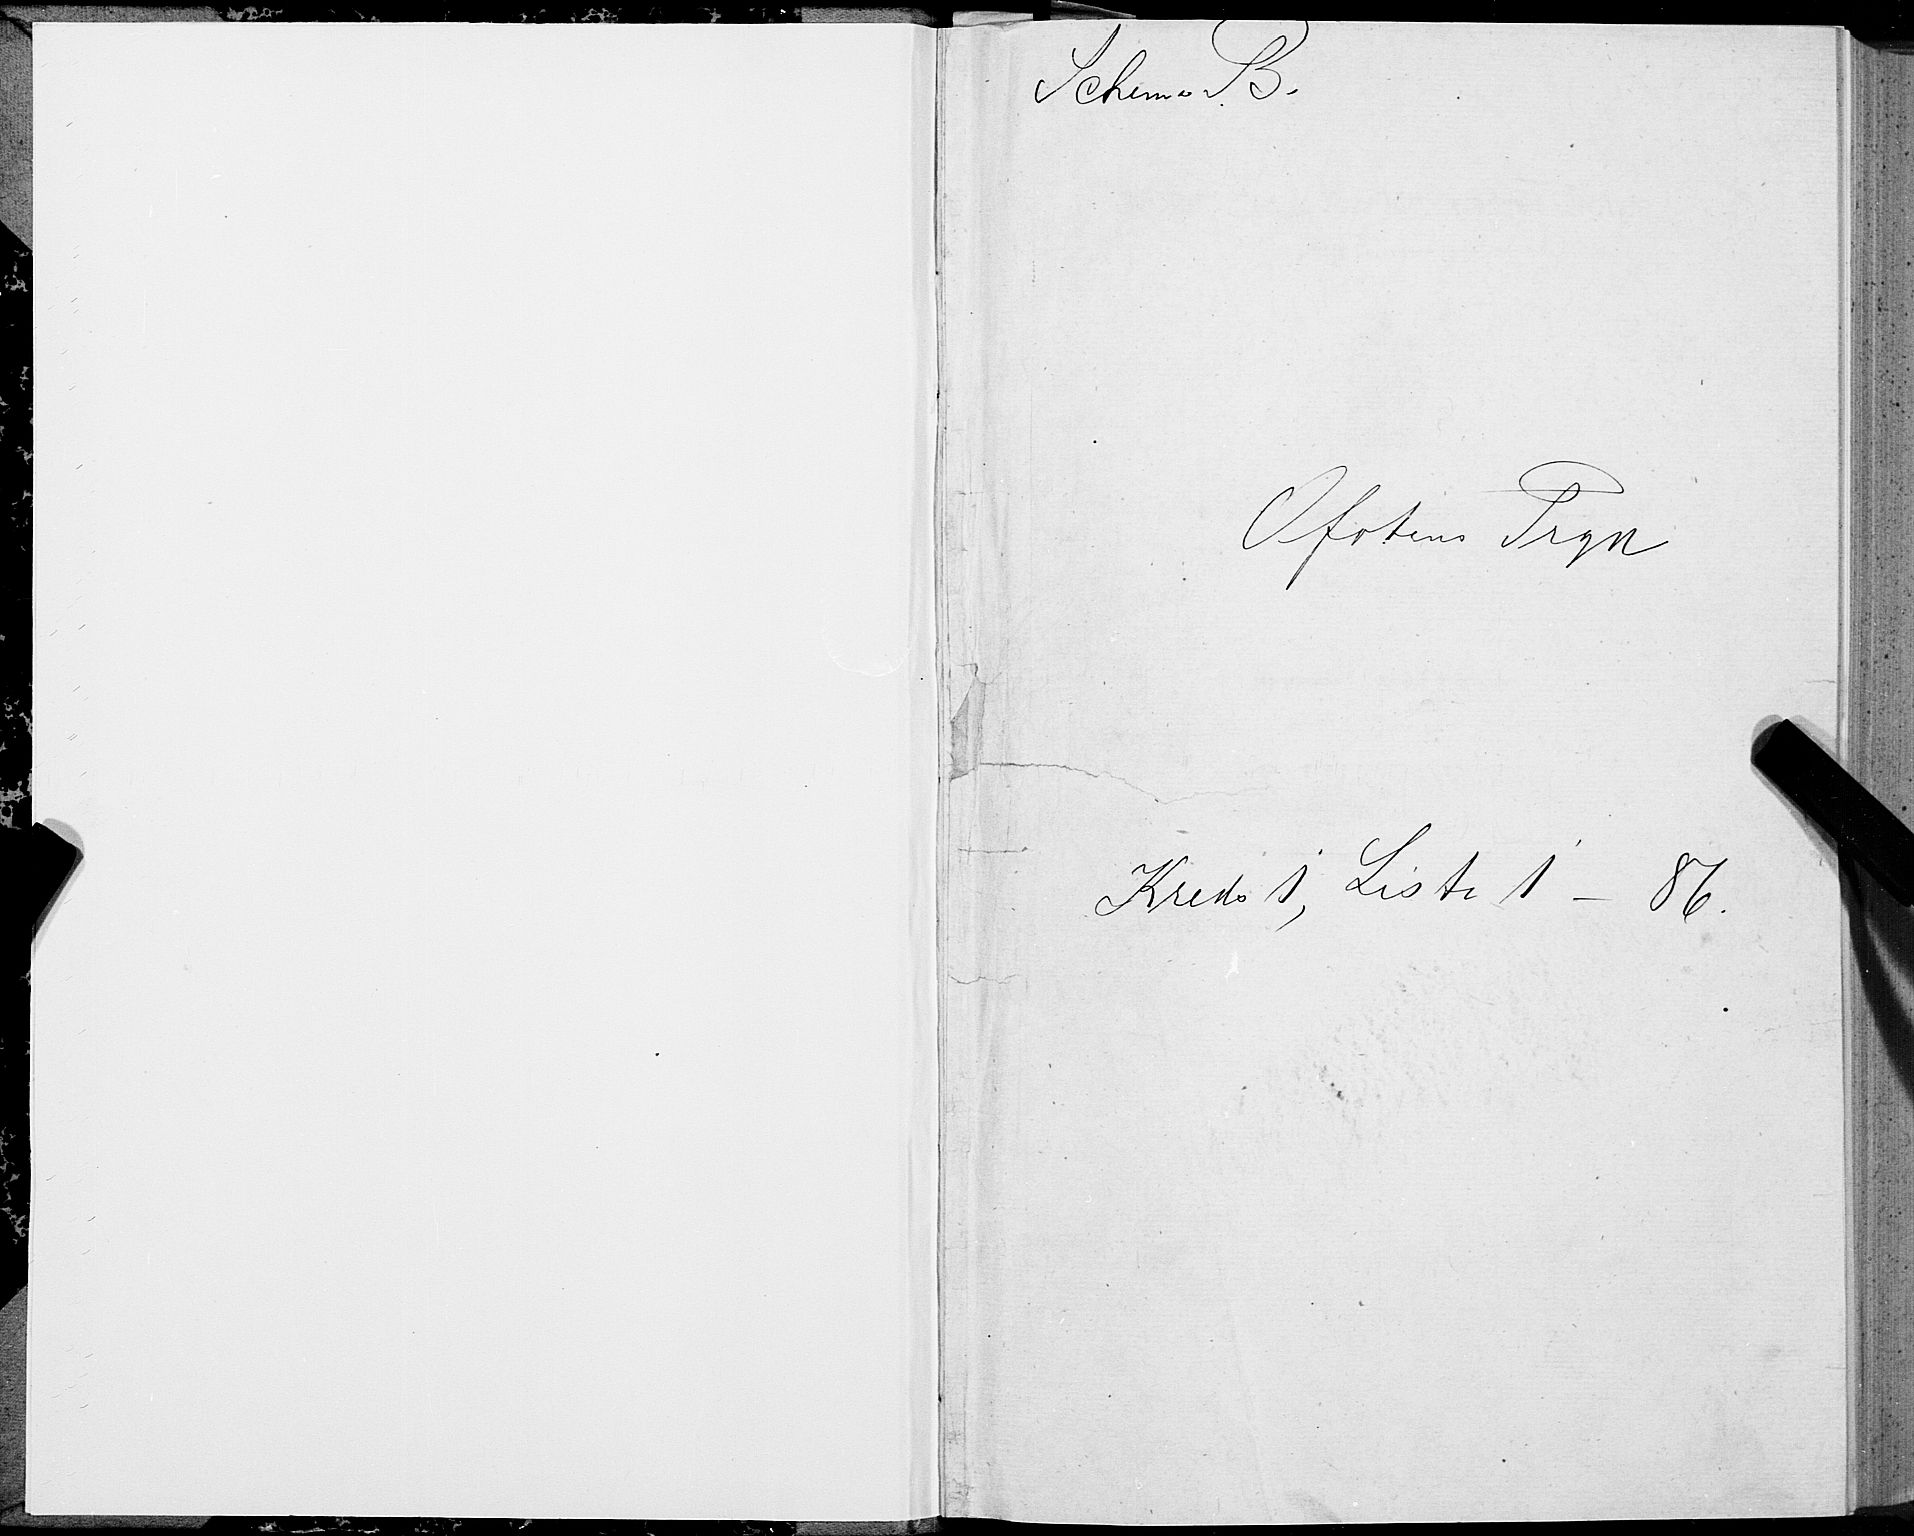 Schema B.
Ofotens Prgn
Kreds 1, Liste 1 – 86.